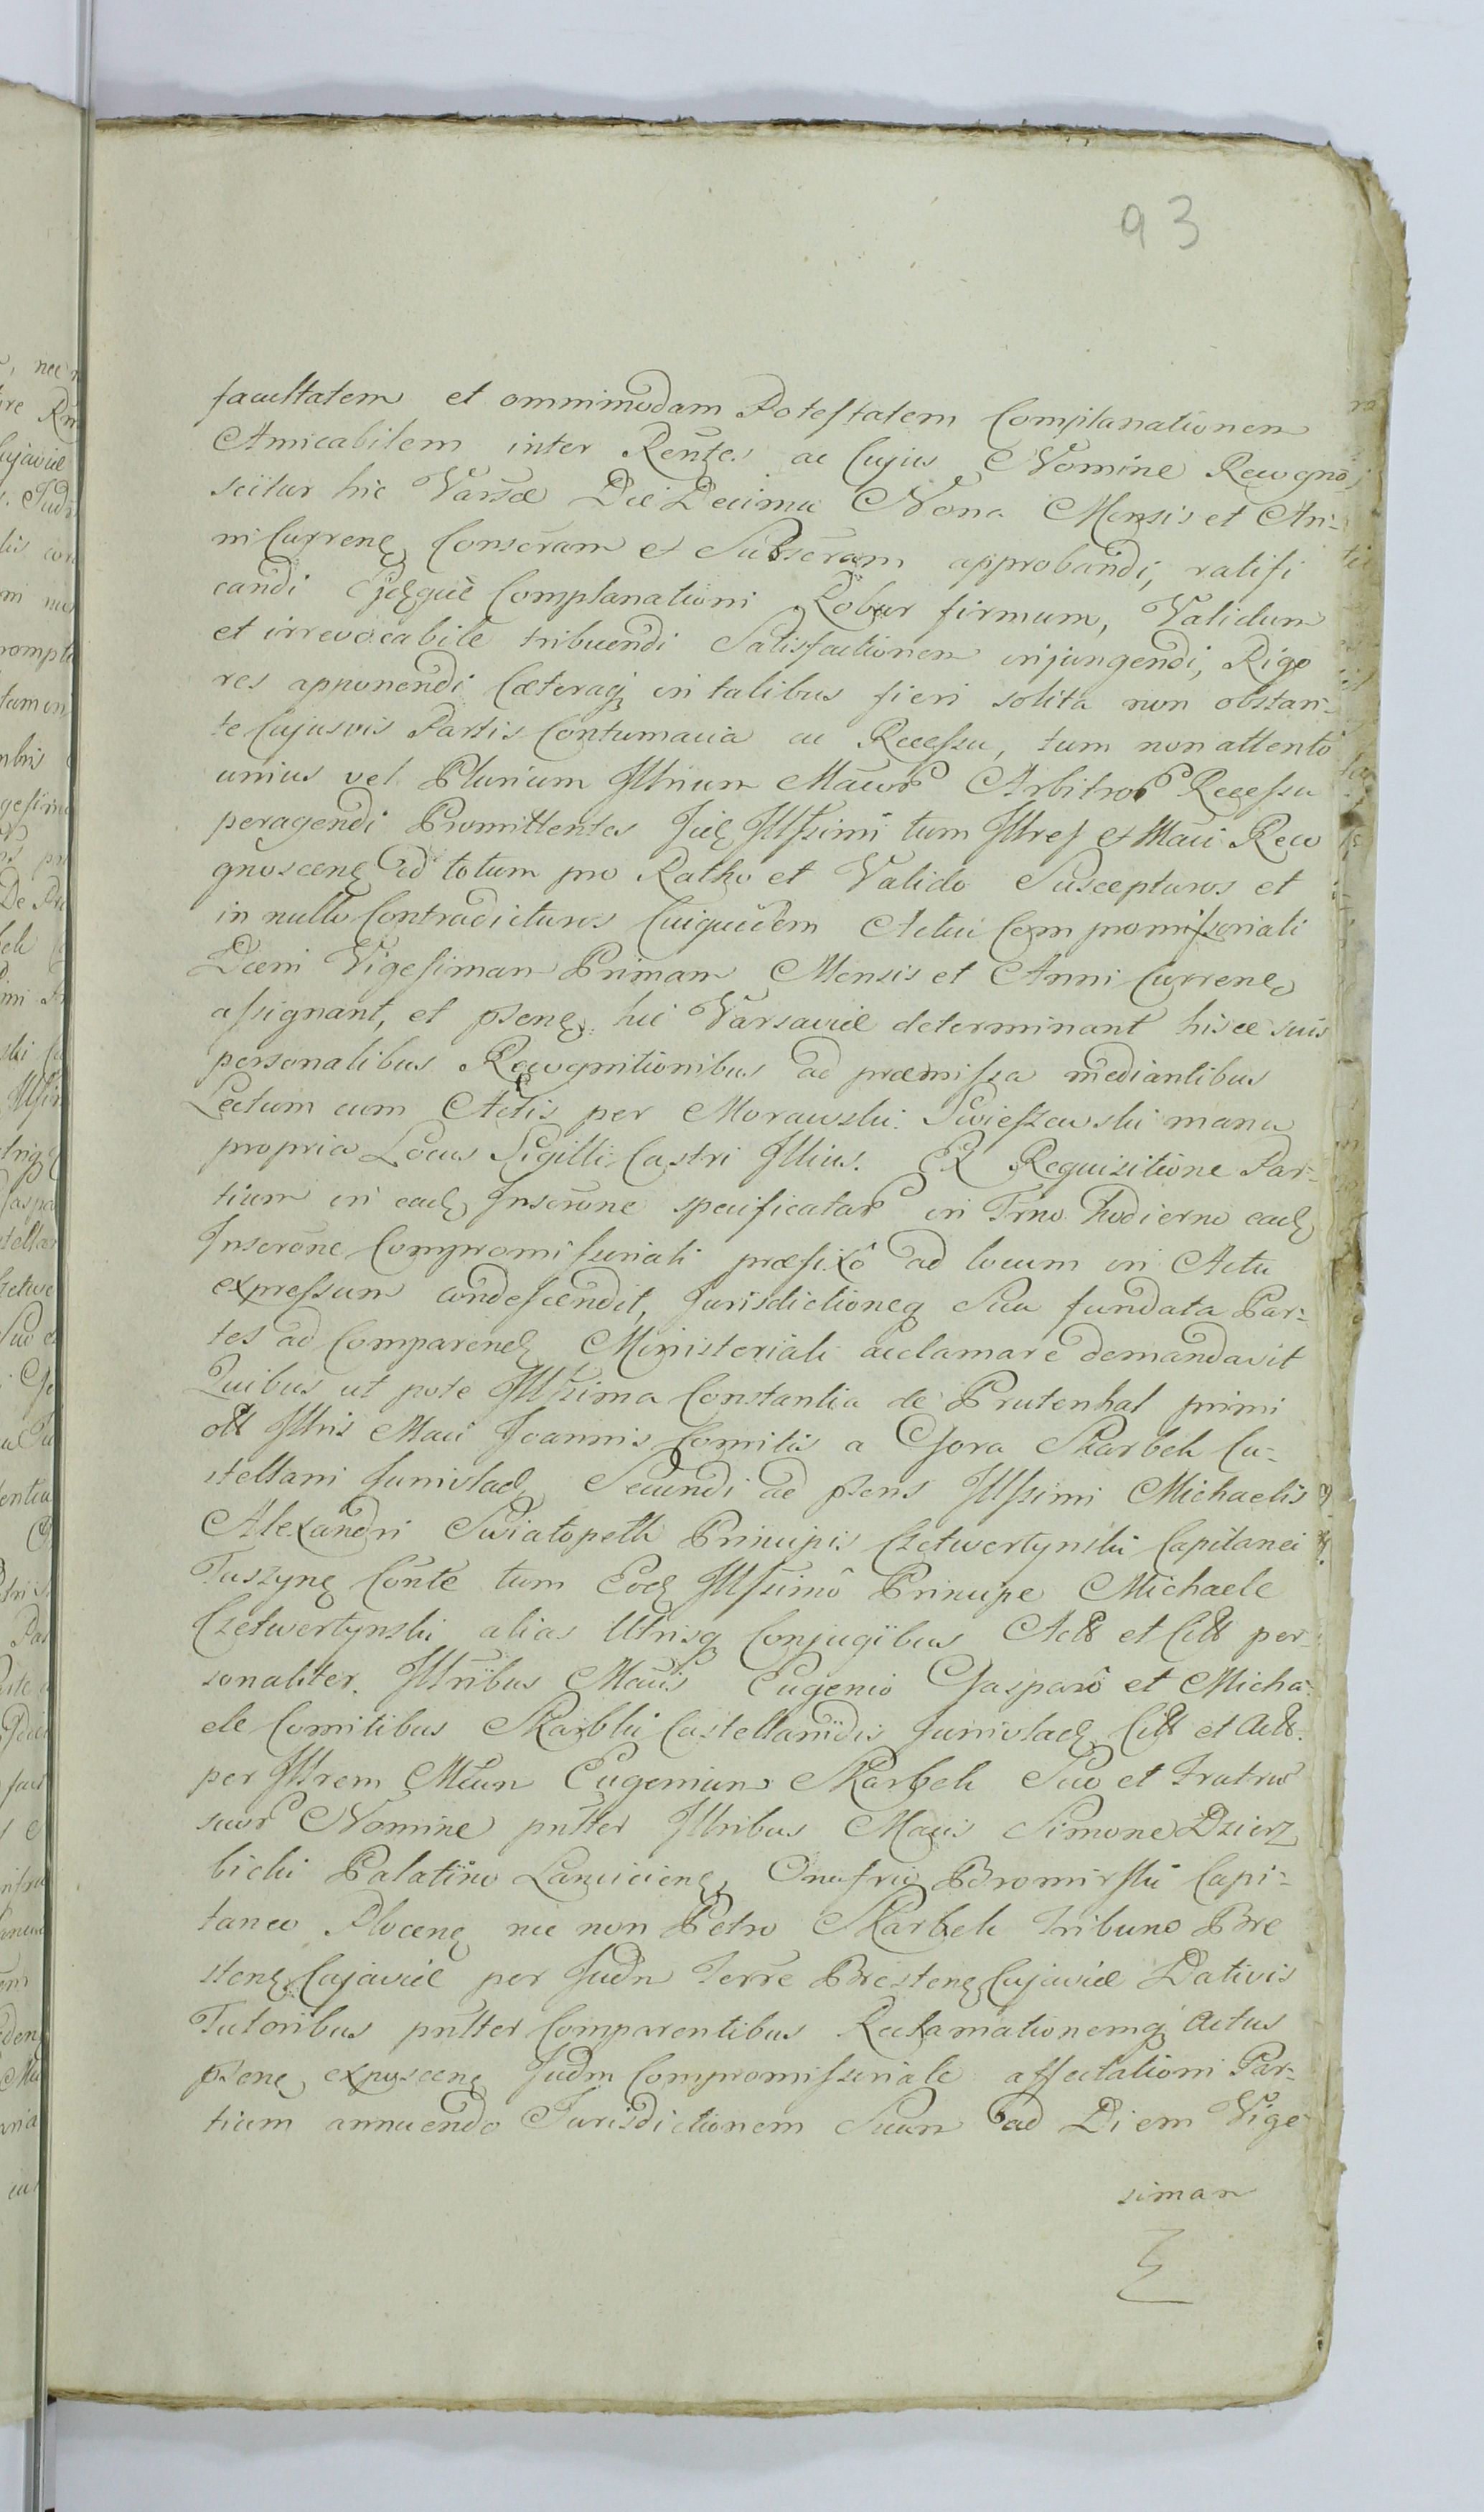 93
facultatem et omnimodam Potestatem Complanationem
Amicabilem inter Rentes ac Cujus Nomine Recogno-
scitur hic Varsae Die Decima Nona Mensis et An-
ni Curren Conscram et Subscram approbandi, ratifi
candi Ejdque Complanationi Robur firmum, Validum
et irrevocabile tribuendi Satisfactionem injungendi, Rigo
res apponendi Caeteraq in talibus fieri solita non obstan-
te Cujusvis Partis Contumacia ac Recessu, tum non attento
unius vel Plurium Illrium Macor Arbitror Recessu
peragendi Promittentes Iid Illssimi tum Illres et Maci Reco
gnoscen id totum pro Ratho et Valido Suscepturos et
in nullo Contradicturos Cuiquidem Actui Compromissoriali
Diem Vigesimam Primam Mensis et Anni Curren
assignant, et psen hic Varsaviae determinant hisce suis
personalibus Recognitionibus ad praemissa mediantibus
Lectum cum Actis per Morawski. Swieszewski manu
propria Locus Sigilli Castri Illius. Ex Requisitione Par-
tium in ead Inscrone specificatar in Trno hodierno ead
Inscrone Compromissoriali praefixo ad locum in Actu
expressum condescendit, Jurisdictioneq Sua fundata Par-
tes ad Comparend Ministeriali acclamare demandavit
Quibus ut pote Illssima Constantia de Prutenhal primi
olt Illris Maci Joannis Comitis a Gora Skarbek Ca-
stellani Junivlad, Secundi ad psens Illssimi Michaelis
Alexandri Swiatopelk Principis Czetwertynski Capitanei
Tuszyn Conte tum Eod Illssimo Principe Michaele
Czetwertynski alias Utrisq Conjugibus Actt et Citt per-
sonaliter. Illribus Macis Eugenio Gasparo et Micha-
ele Comitibus Skarbki Castellanidis Junivlad Citt et Actt.
per Illrem Mcum Eugenium Skarbek Suo et Fratrus
suor Nomine pntter Illribus Macis Simone Dzierz
bicki Palatino Lancicien, Onufrio Bromirski Capi-
taneo Plocen nec non Petro Skarbek Tribuno Bre
sten Cujaviae per Judm Terre Bresten Cujaviae Dativis
Tutoribus pntter Comparentibus Reclamationemq Actus
psen exposcen Judm Compromissoriale affectationi Par-
tium annuendo Jurisdictionem Suam ad Diem Vige
simam